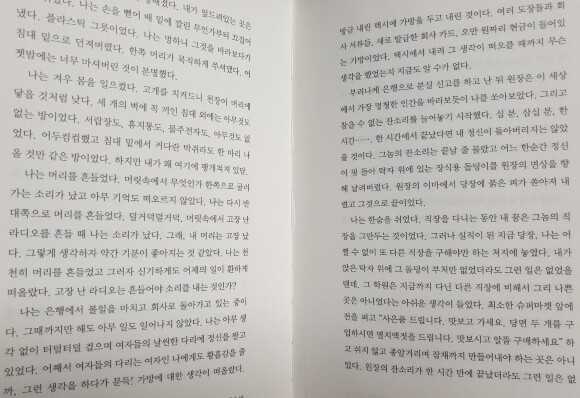 나는 손을 뻗어 배 밑에 깔린 무언가부터 끄집어
냈다. 플라스틱 그릇이었다. 나는 멍하니 그것을 바라보다가
침대 밑으로 던져버렸다. 한쪽 머리가 묵직하게 쑤셔댔다. 어
젯밤에는 너무 마셔버린 것이 분명했다.
나는 겨우 몸을 일으켰다. 고개를 치켜드니 천장이 머리에
닿을 것처럼 낮다. 세 개의 벽에 꼭 끼인 침대 외에는 아무것도
없는 방이었다. 서랍장도, 휴지통도, 물주전자도, 아무것도 없
었다. 어두컴컴했고 침대 밑에서 커다란 박쥐라도 한 마리 나
올 것만 같은 방이었다. 하지만 내가 왜 여기에 팽개쳐져 있담.
나는 머리를 흔들었다. 머릿속에서 무엇인가 한쪽으로 굴러
가는 소리가 났고 아무 기억도 떠오르지 않았다. 나는 다시 반
대쪽으로 머리를 흔들었다. 덜거덕덜거덕, 머릿속에서 고장 난
라디오를 흔들 때 나는 소리가 났다. 그래, 내 머리는 고장 났
다. 그렇게 생각하자 약간 기분이 좋아지는 것 같았다. 나는 천
천히 머리를 흔들었고 그러자 신기하게도 어제의 일이 환하게
떠올랐다. 고장 난 라디오는 흔들어야 소리를 내는 것인가?
나는 은행에서 볼일을 마치고 회사로 돌아가고 있는 중이
다. 그때까지만 해도 아무 일도 일어나지 않았다. 나는 아무 생
각 없이 터덜터덜 걸으며 여자들의 날씬한 다리에 정신을 팔고
있었다. 어째서 여자들의 다리는 여자인 나에게도 황홀감을 줄
까, 그런 생각을 하다가 문득! 가방에 대한 생각이 떠올랐다.
방금 내린 택시에 가방을 두고 내린 것이다. 여러 도장들과 회
사 서류들, 새로 발급한 회사 카드, 오만 원짜리 현금이 들어있
는 가방이었다. 택시에서 내려 그 생각이 떠오를 때까지 무슨
생각을 했었는지 지금도 알 수가 없다.
부리나케 은행으로 분실 신고를 하고 난 뒤 원장은 이 세상
에서 가장 멍청한 인간을 바라보듯이 나를 쏘아보았다. 그리고
참을 수 없는 잔소리를 늘어놓기 시작했다. 십 분, 삼십 분, 한
시간……. 한 시간에서 끝났다면 내 정신이 돌아버리지는 않았
을 것이다. 그놈의 잔소리는 끝날 줄 몰랐고 어느 한순간 정신
이 핑 돌아 탁자 위에 있는 장식용 돌덩이를 원장의 면상을 향
해 날려버렸다. 원장의 이마에서 당장에 붉은 피가 쏟아져 내
렸고 그것으로 끝이었다.
나는 한숨을 쉬었다. 직장을 다니는 동안 내 꿈은 그놈의 직
장을 그만두는 것이었다. 그러나 실직이 된 지금 당장, 나는 어
쩔 수 없이 또 다른 직장을 구해야만 하는 처지에 놓였다. 내가
앉은 탁자 위에 그 돌덩이 부처만 없었더라도 그런 일은 없었을
텐데. 그 학원은 지금까지 다닌 다른 직장에 비해서 그리 나쁜
곳은 아니었다는 아쉬운 생각이 들었다. 최소한 슈퍼마켓 앞에
전을 펴고 "사은품 드립니다. 맛보고 가세요. 당면 두 개를 구
입하시면 멸치액젓을 드립니다. 맛보시고 알뜰 구매하세요" 하
고 쉬지 않고 종알거리며 잠재까지 만들어내야 하는 곳은 아니
었다. 원장의 잔소리가 한 시간 만에 끝났더라도 그런 일은 없